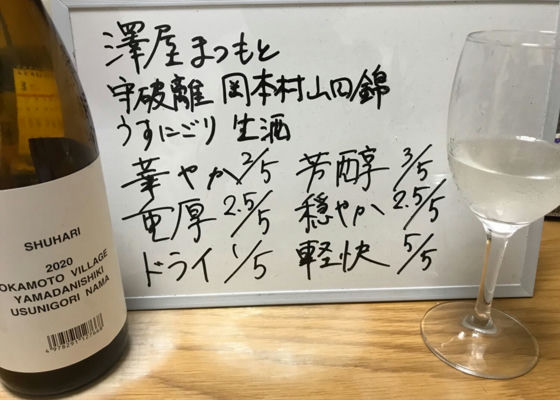 澤屋まつもと
守破離 岡本村山田錦
うすにごり 生酒
華やか 2/5 芳醇 3/5
重厚 2.5/5 穏やか 2.5/5
ドライ 1/5 軽快 5/5
SHUHARI
2020
OKAMOTO VILLAGE
YAMADANISHIKI
USUNIGORI NAMA